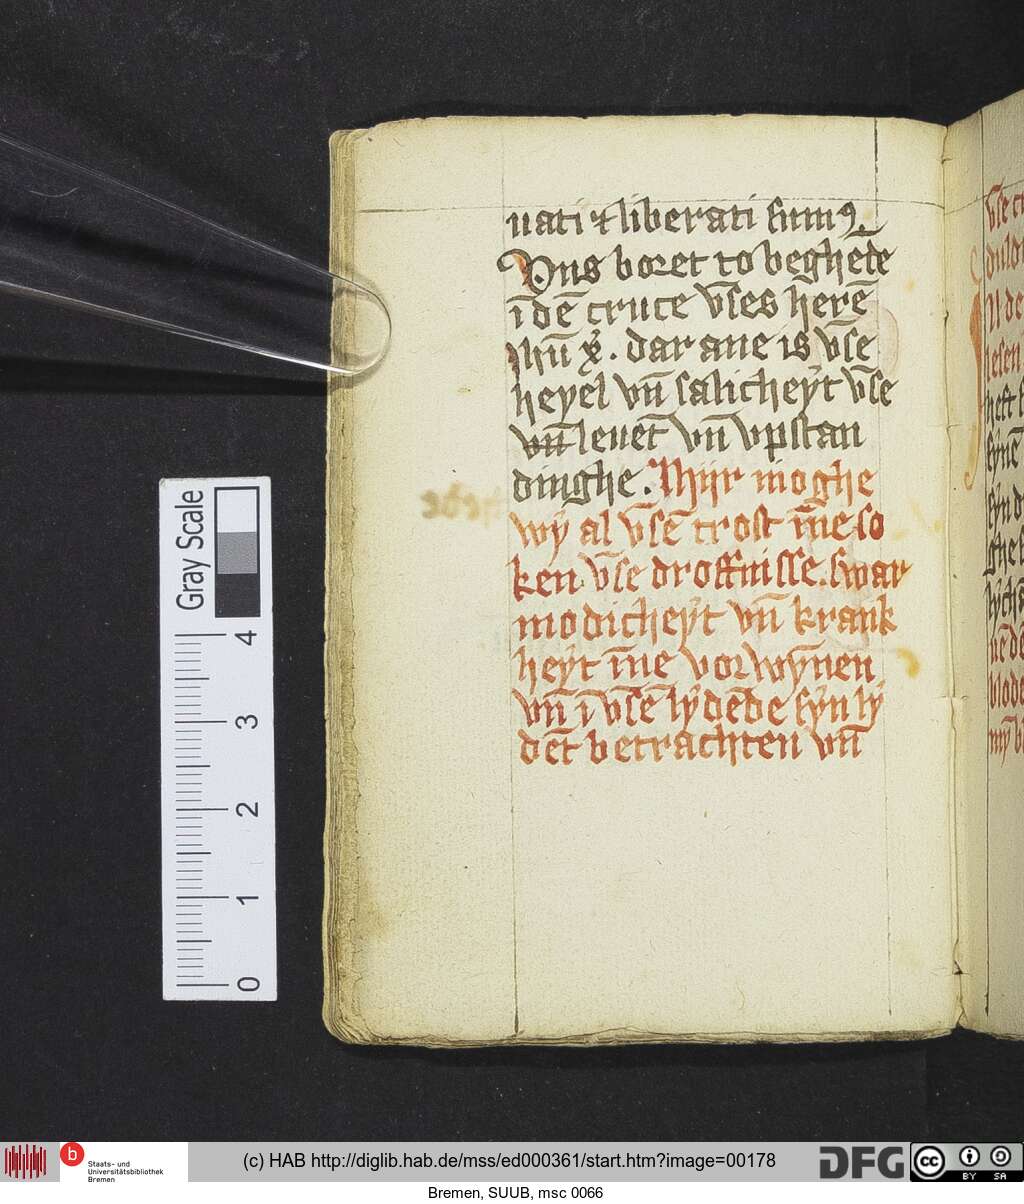 uati ⁊ liberati sum⁹.
Uns boret to beghēde
ī dē cruce v̄ses herē
ihū xp̄. dar ane is v̄se
heyel vn̄ salicheyt v̄se
vn̄ leuēt vn̄ vpstan
dinghe. Thijr moghe
wy al v̄sē trost īne so
ken v̄se droffnisse. swar
modicheyt vn̄ krank
heyt īne vorwynnen
vn̄ ī v̄sē lydēde syn ly
dēt betrachten vn̄
Gray Scale
4
3
2
1
0
Staats- und
Universitätsbibliothek
Bremen
(c) HAB http://diglib.hab.de/mss/ed000361/start.htm?image=00178
DFG
cc BY SA
Bremen, SUUB, msc 0066